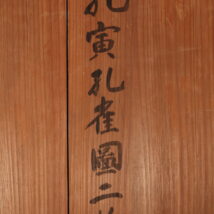 孔寅孔雀圖二